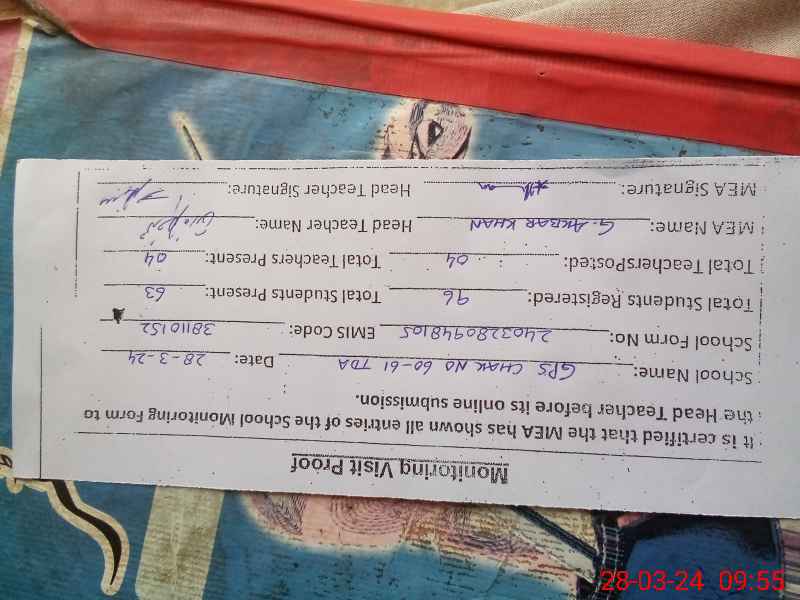 Monitoring Visit Proof
It is certified that the MEA has shown all entries of the School Monitoring Form to
the Head Teacher before its online submission.
School Name: GPS CHAK NO 60-61 TDA Date: 28-3-24
School Form No: 24032809448105 EMIS Code: 38110152
Total Students Registered: 96 Total Students Present: 63
Total TeachersPosted: 04 Total Teachers Present: 04
MEA Name: G. AKBAR KHAN Head Teacher Name:
MEA Signature: Head Teacher Signature:
28-03-24 09:55